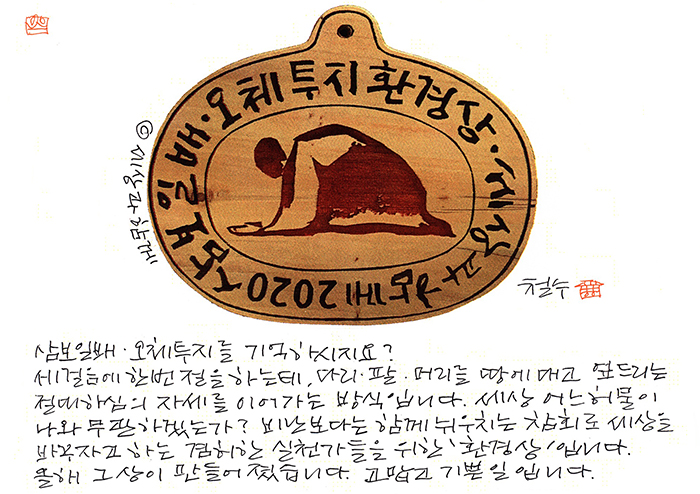 삼보일배·오체투지 환경상·세상과함께 2020
ⓒ세상과함께
철수
삼보일배·오체투지를 기억하시지요?
세걸음에 한번 절을 하는데, 다리·팔·머리를 땅에 대고 엎드리는
절대하심의 자세를 이어가는 방식입니다. 세상 어느 허물이
나와 무관하겠는가? 비난보다는 함께 뉘우치는 참회로 세상을
바꾸자고 하는 겸허한 실천가들을 위한 '환경상'입니다.
올해 그 상이 만들어졌습니다. 고맙고 기쁜 일입니다.